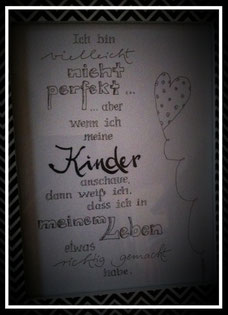 Ich bin
vielleicht
nicht
perfekt...
... aber
wenn ich
meine
Kinder
anschaue,
dann weiß ich,
dass ich in
meinem Leben
etwas
richtig gemacht
habe.